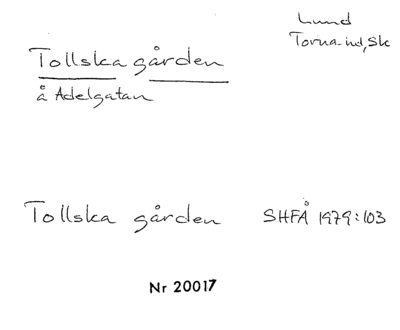 Lund
Torna-hd, Sk
Tollska gården
å Adelgatan
Tollska gården SHFÅ 1979:103
Nr 20017